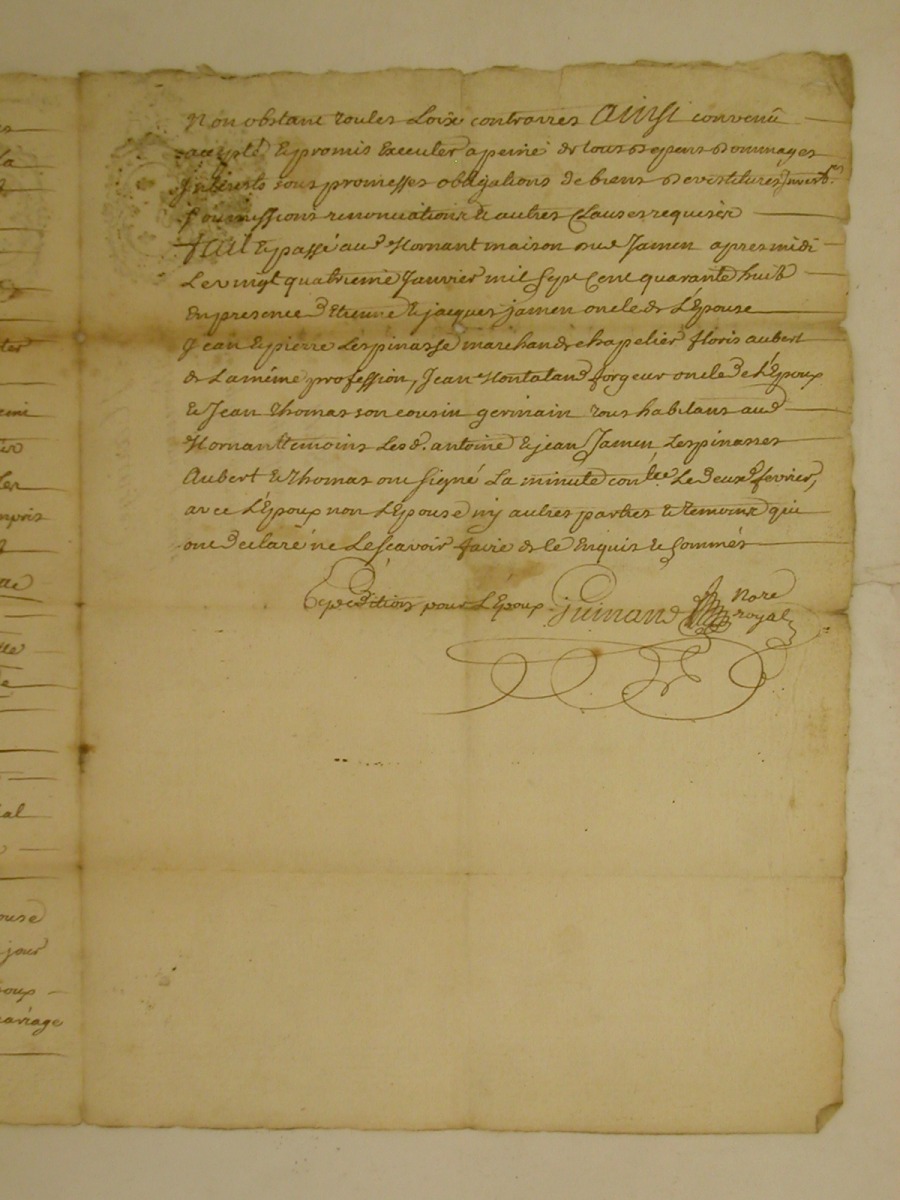 Non obstant toutes Loix contraires Ainsi convenû
accepté & promis Executer a peine de tous depens dommages
Interests sous promesses obligations de biens
soumissions renonciations & autres Clauses requises
Fait & passé aud Mornant maison dud Jamen apres midi
Le vingt quatrieme Janvier mil Sept Cent quarante huit
En presence d'Etienne & jacques jamen oncle de L'Epouse
Jean & pierre Lespinasse marchands chapelier floris aubert
de La même profession, Jean Montaland forgeur oncle de L'Epoux
& Jean Thomas son cousin germain tous habitans aud
Mornant temoins Lesd. antoine & jean Jamen Lespinasses
Aubert & Thomas ont signé La minute conlée Le deux fevrier,
avec L'Epoux non L'Epouse ny autres parties & temoins qui
ont declaré ne Le scavoir faire de le Enquis & Sommés
Expedition pour L'Epoux Guinand Nore
royal
es
la
ter
emi
Les
mpris
tte
al
ouse
jour
oux
ariage